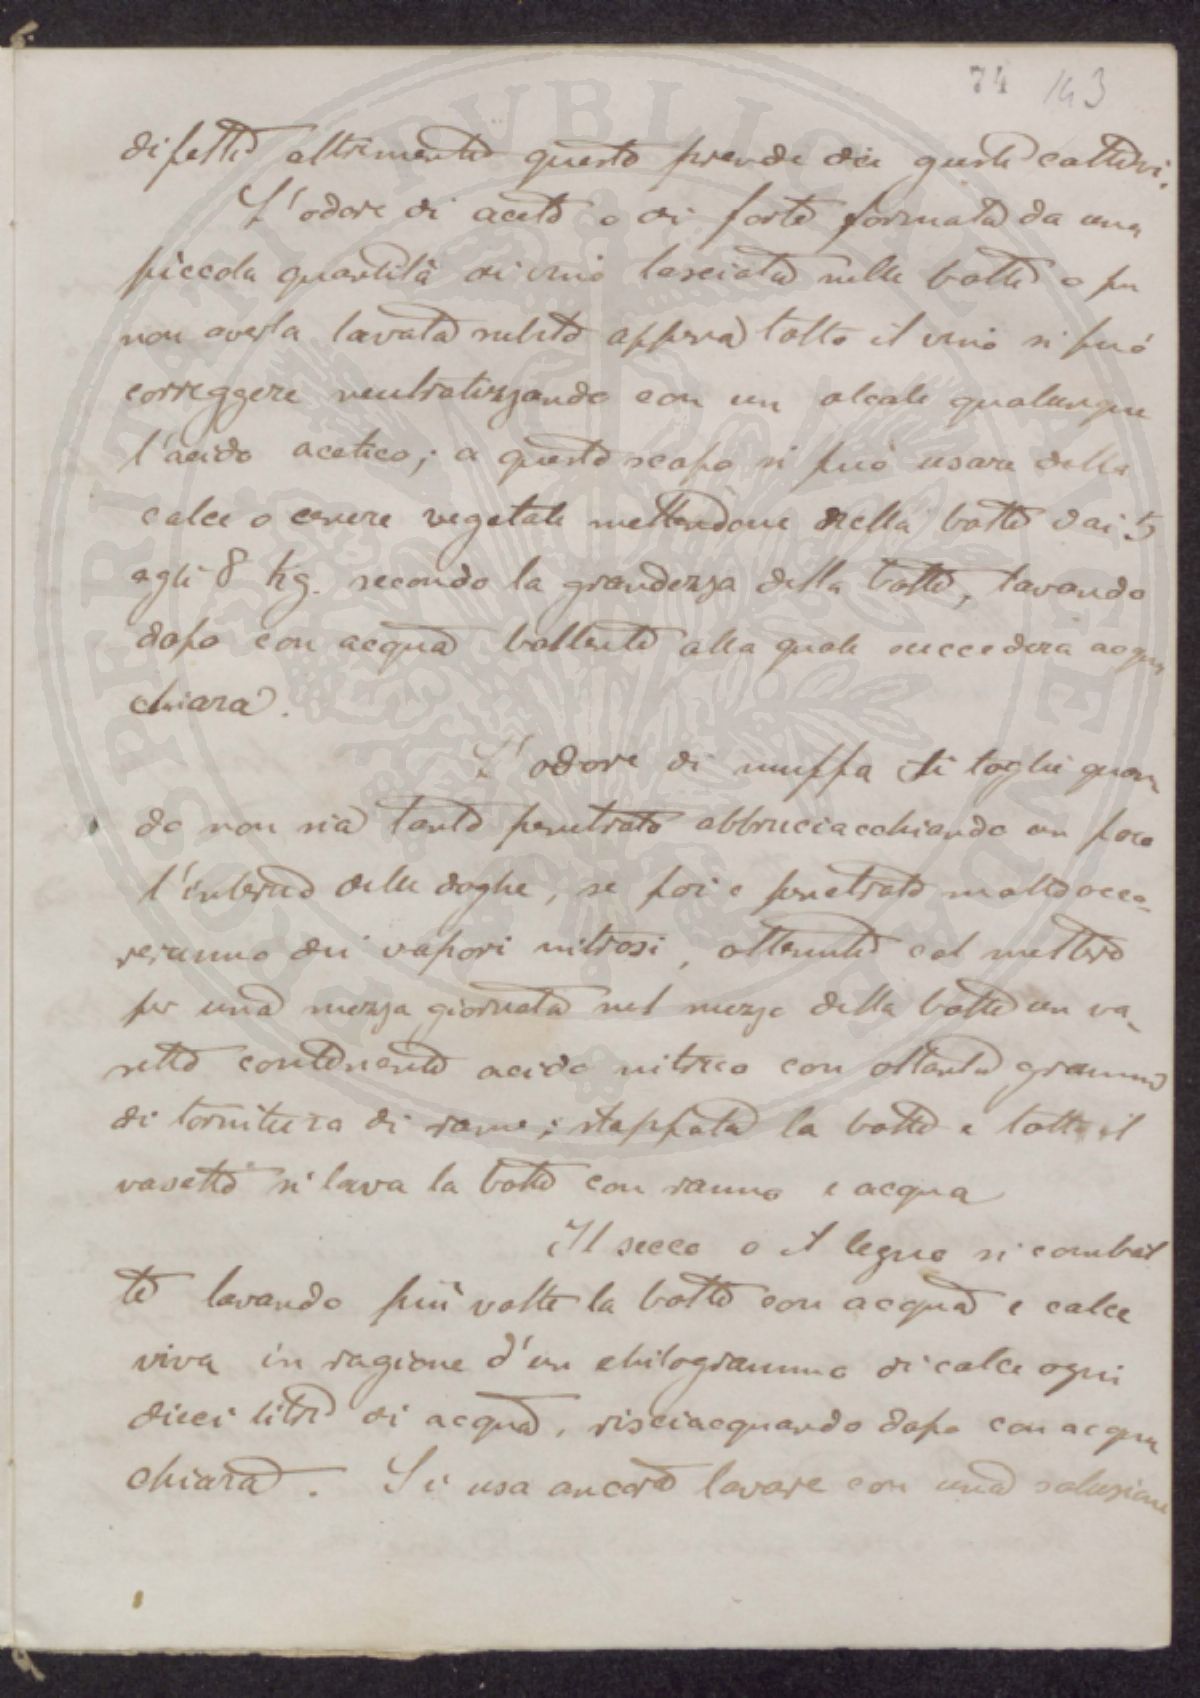 74 143
difetti altrimenti questo prende dei gusti cattivi.
L'odore di aceto o di forte formata da una
piccola quantità di vino lasciata nella botte o per
non averla lavata subito appena tolto il vino si può
correggere neutralizzando con un alcali qualunque
l'acido acetico; a questo scopo si può usare della
calce o cenere vegetale mettendone nella botte dai 5
agli 8 kg. secondo la grandezza della botte, lavando
dopo con acqua bollente alla quale succederà acqua
chiara.
L'odore di muffa si toglie quan
do non sia tanto penetrato abbruciacchiando un poco
l'interno delle doghe, se poi è penetrato molto occo-
reranno dei vapori nitrosi, ottenuti col mettere
per una mezza giornata nel mezzo della botte un va-
setto contenente acido nitrico con ottanta grammi
di tornitura di rame; stappata la botte e tolto il
vasetto si lava la botte con ranno e acqua
Il secco o il legno si combat
te lavando più volte la botte con acqua e calce
viva in ragione d'un chilogrammo di calce ogni
dieci litri di acqua, risciacquando dopo con acqua
chiara. Si usa ancora lavare con una soluzione